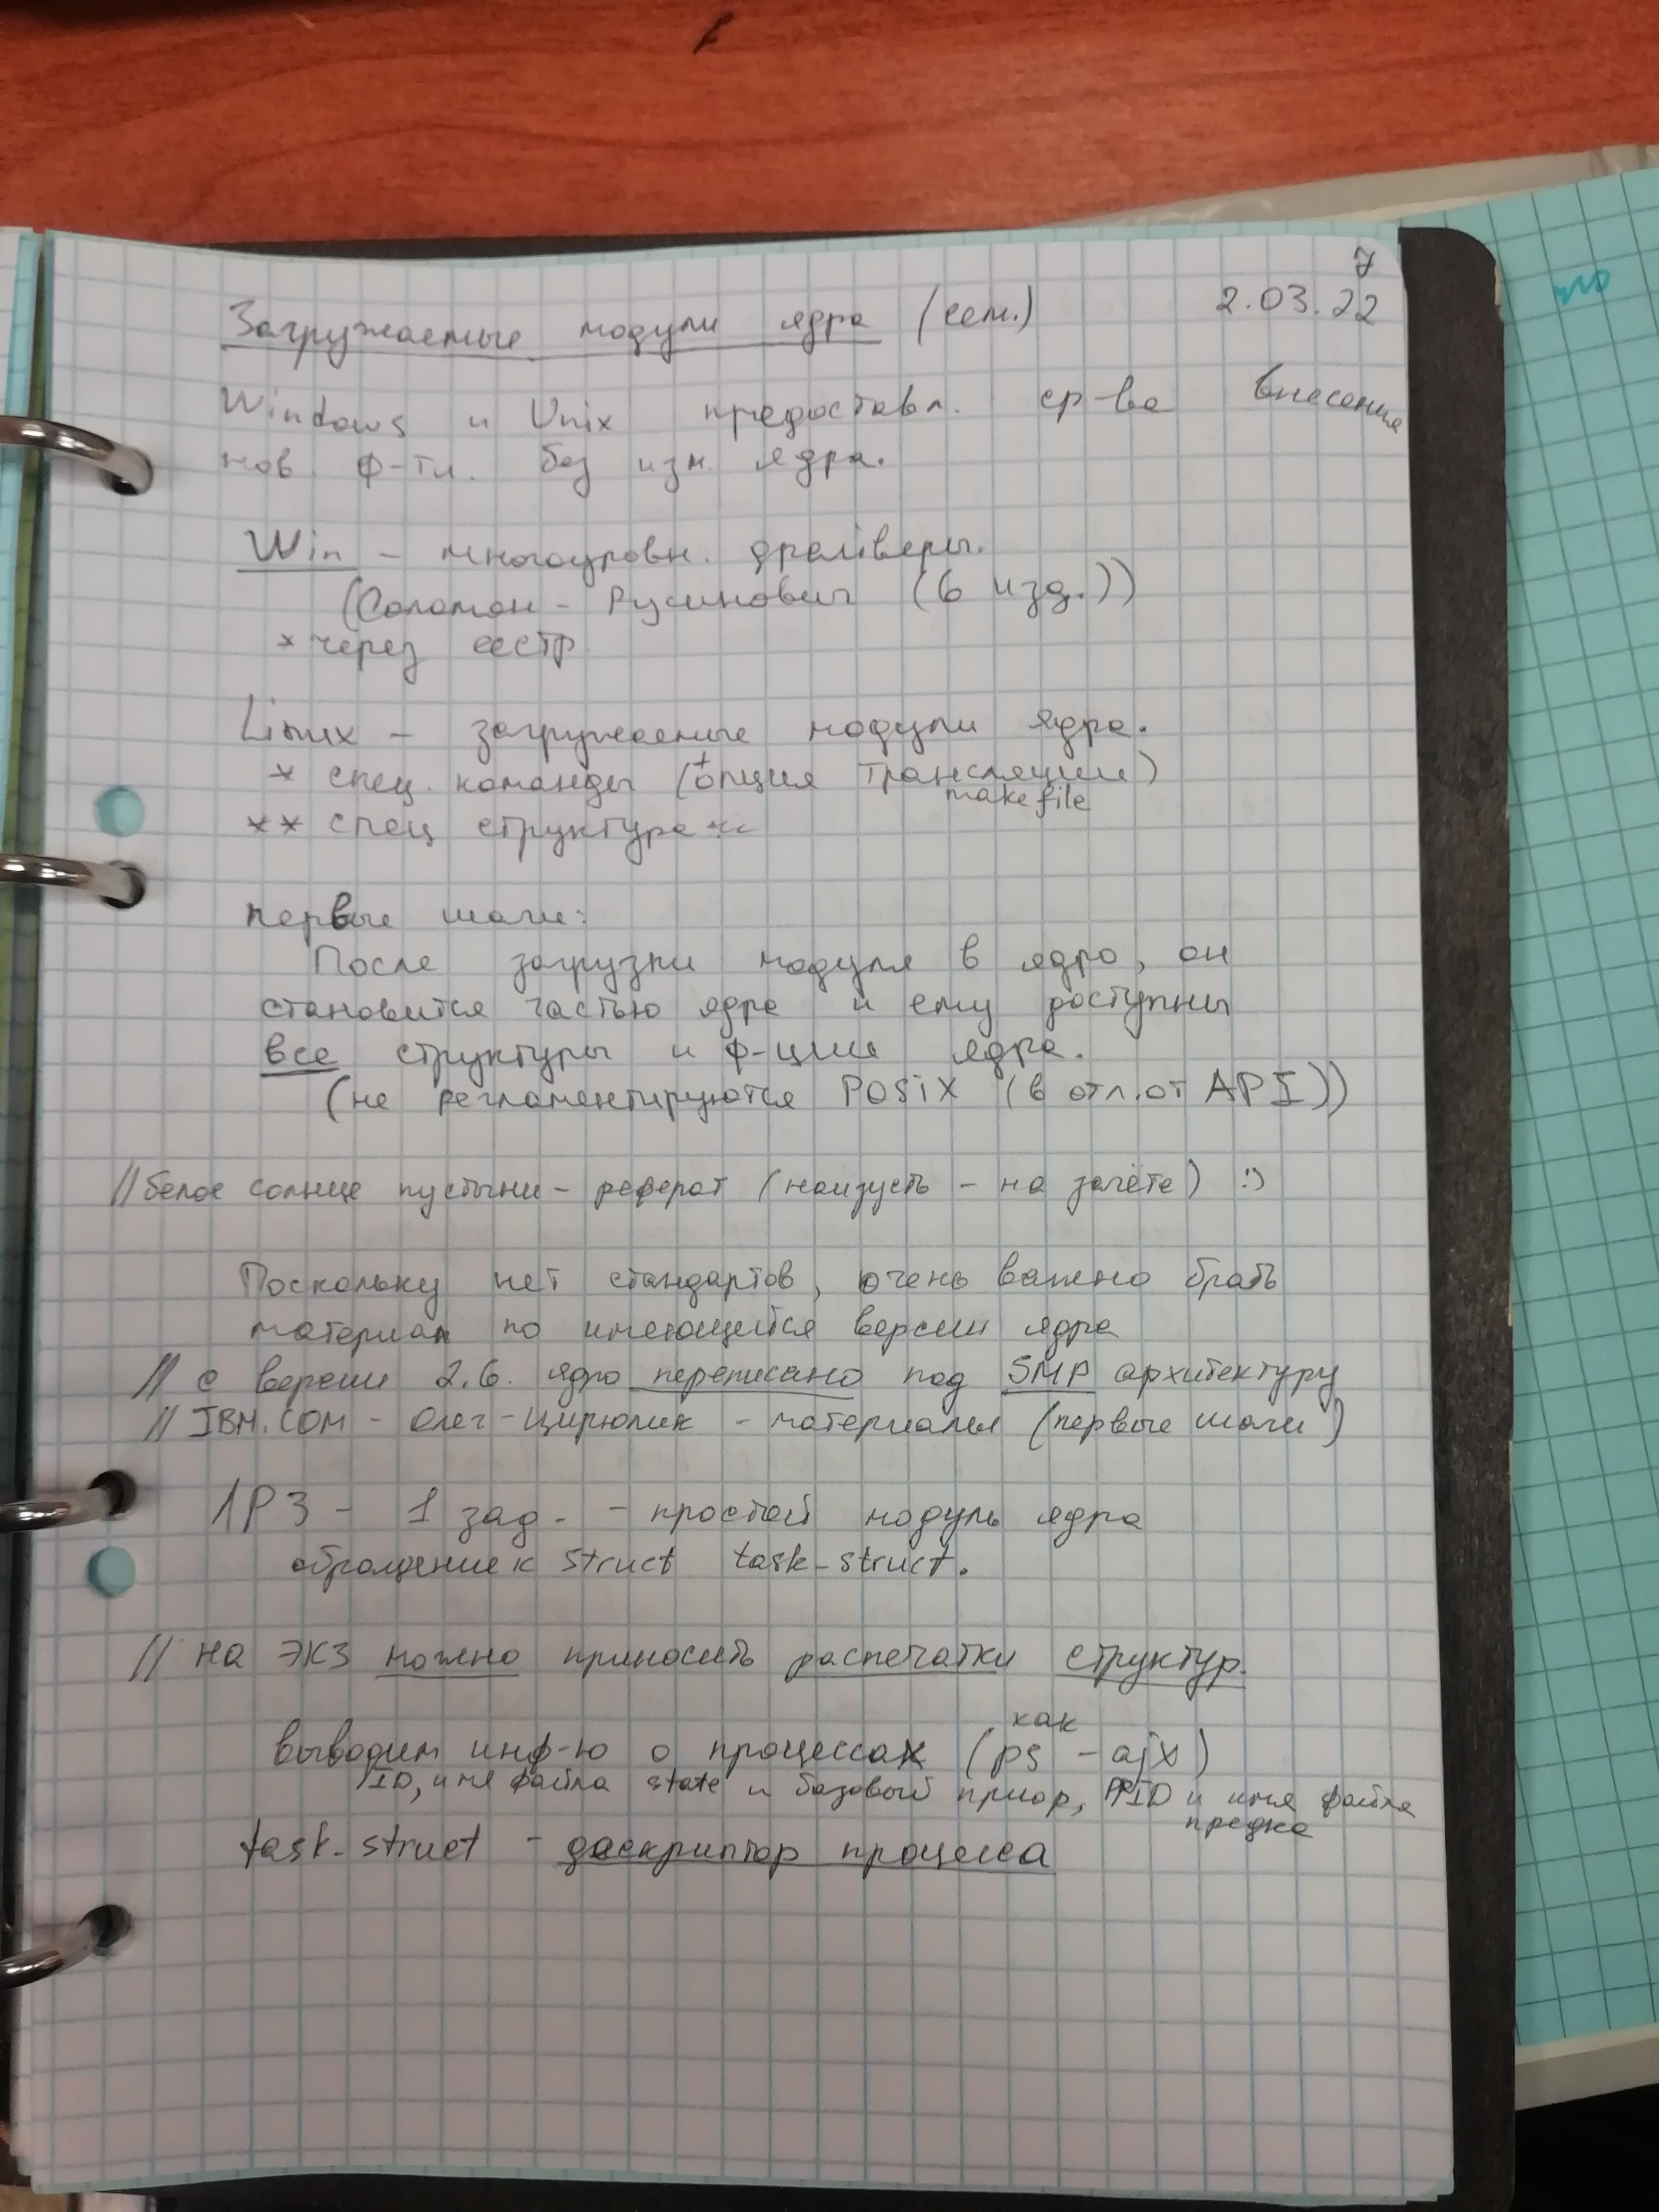 7
2.03.22
Загружаемые модули ядра (сем.)
Windows и Unix предоставл. ср-ва внесения
нов. ф-тл. без изм. ядра.
Win - многоуровн. драйверы.
(Соломон - Русинович (6 изд.))
* через сестр.
Linux - загружаемые модули ядра.
* спец. команды (+опция трансляции)
makefile
** спец структура
первые шаги:
После загрузки модуля в ядро, он
становится частью ядра и ему доступны
все структуры и ф-ции ядра.
(не регламентируются POSIX (в отл. от API))
// белое солнце пустыни - реферат (наизусть - на зачёте) :)
Поскольку нет стандартов, очень важно брать
материал по имеющейся версии ядра
// с версии 2.6. ядро переписано под SMP архитектуру
// IBM.COM - Олег-Цирюлик - материалы (первые шаги)
ЛР3 - 1 зад. - простой модуль ядра
обращение к struct task-struct.
// на ЭКЗ можно приносить распечатки структур.
как
выводим инф-ю о процессах (ps -ajx)
ID, имя файла state и базовый приор, PPID и имя файла
предка
task-struct - дескриптор процесса